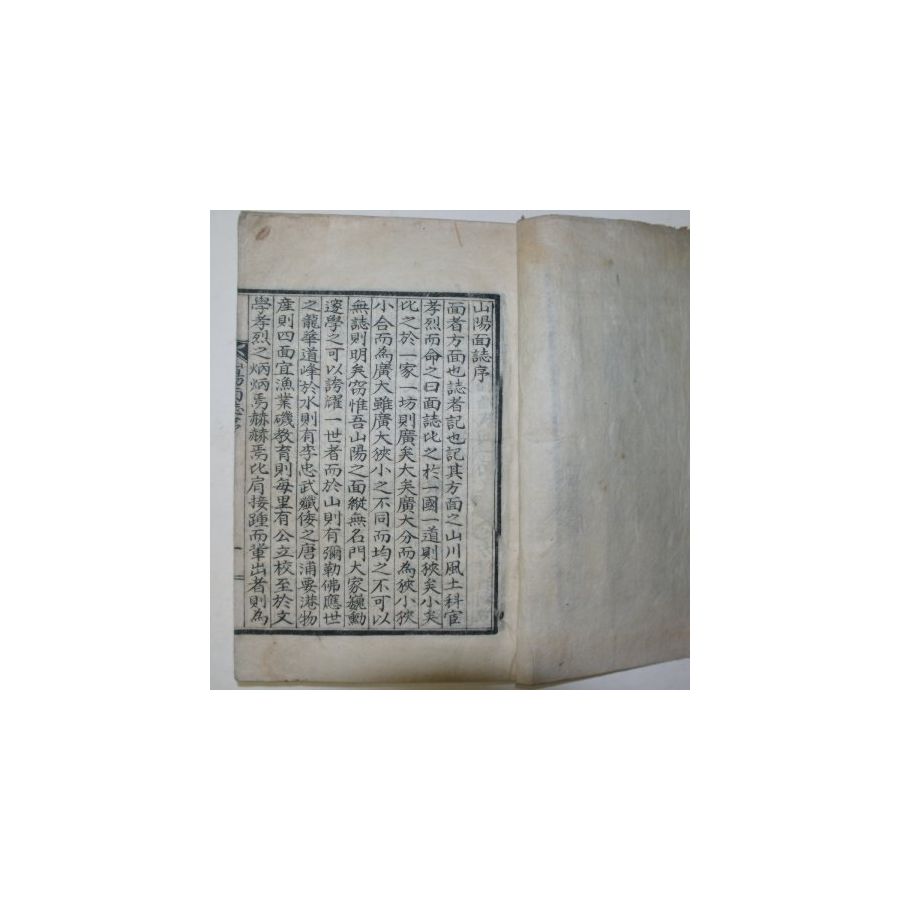 山陽面誌序
面者方面也誌者記也記其方面之山川風土科宦
孝烈而命之曰面誌比之於一國一道則狹矣小矣
比之於一家一坊則廣矣大矣廣大分而為狹小狹
小合而為廣大雖廣大狹小之不同而均之不可以
無誌則明矣窃惟吾山陽之面縱無名門大家巍勳
邃學之可以誇耀一世者而於山則有彌勒佛應世
之龍華道峰於水則有李忠武殲倭之唐浦要港物
産則四面宜漁業磯教育則每里有公立校至於文
學孝烈之炳炳焉赫赫焉比肩接踵而輩出者則為